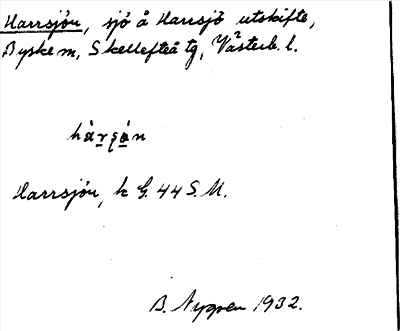 Harrsjön, sjö å Harrsjö utskifte,
Byske sn, Skellefteå tg, Västerb. l.
hàrʂön
Harrsjön, k G. 44 S.M.
B. Nygren 1932.